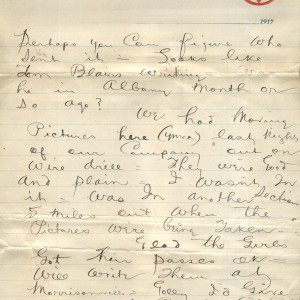 1917
Perhaps you can figure who
sent it = Looks like
Tom Blairs writing was
he in Albany Month or
so ago?
We had Moving
Pictures here (YMCA) last Night
of our Company out on
Wire drill = They were Good
And plain I wasn't In
it = was In another Section
2 miles out when the
Pictures were being Taken
Glad the Girls
Got their passes OK =
Will write them at
Morrisonville = Golly I'd Give